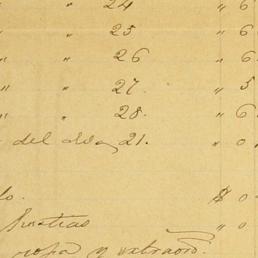 " " 24 " 6
" " 25 " 6
" " 26 " 6
" " 27 " 5
" " 28. " 6
del dia 21. " 0
$ 0
" 0
ropa y extraord.